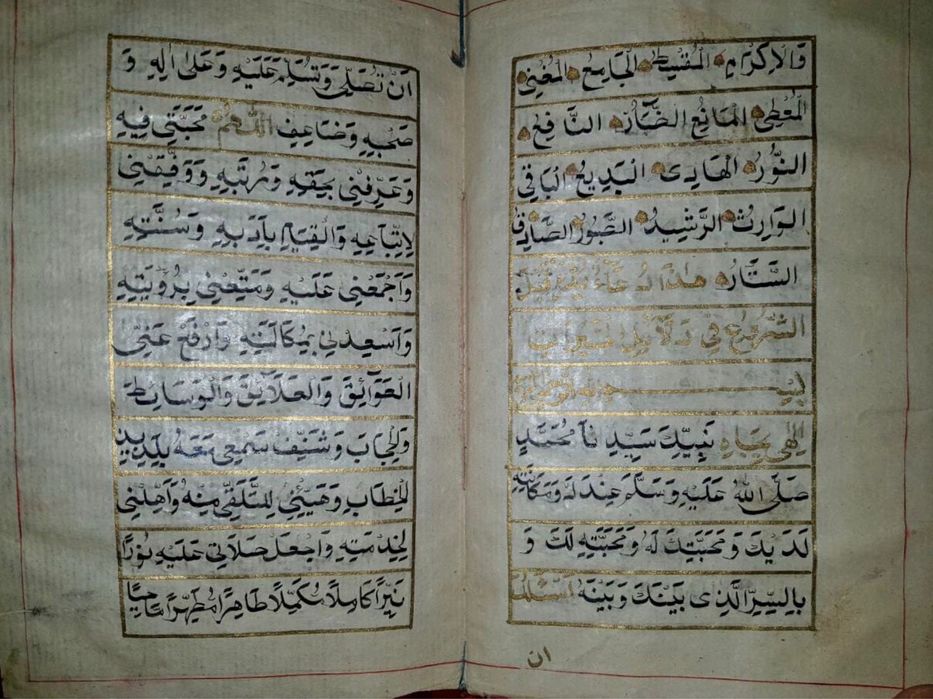 وَالْاِكْرَامِ الْمُقْسِطُ الْجَامِعُ الْمُغْنِي
الْمُعْطِي الْمَانِعُ الضَّآرُّ النَّافِعُ
النُّوْرُ الْهَادِي الْبَدِيعُ الْبَاقِي
الْوَارِثُ الرَّشِيدُ الصَّبُورُ الصَّادِقُ
السَّتَّارُ هٰذَا الدُعَاءُ يقرء قَبْلَ
الشُّرُوعِ فِي دَلَآئِلِ الْخَيْرَاتِ
اِلٰهِي بِجَاهِ نَبِيِّكَ سَيِّدِنَا مُحَمَّدٍ
صَلَّى اللّٰهُ عَلَيْهِ وَسَلَّمَ عِنْدَكَ وَمَكَانَتِهِ
لَدَيْكَ وَمَحَبَّتِكَ لَهُ وَمَحَبَّتِهِ لَكَ وَ
بِالسِّرِّ الَّذِي بَيْنَكَ وَبَيْنَهُ اَسْئَلُكَ
ان
اَنْ تُصَلِّيَ وَتُسَلِّمَ عَلَيْهِ وَعَلٰى اٰلِهِ وَ
صَحْبِهِ وَضَاعِفِ اللّٰهُمَّ مَحَبَّتِي فِيهِ
وَعَرِّفْنِي بِحَقِّهِ وَرُتَبِهِ وَوَفِّقْنِي
لِاِتِّبَاعِهِ وَالْقِيَامِ بِاَدَبِهِ وَسُنَّتِهِ
وَاجْمَعْنِي عَلَيْهِ وَمَتِّعْنِي بِرُؤْيَتِهِ
وَاَسْعِدْنِي بِمُكَالَمَتِهِ وَارْفَعْ عَنِّي
الْعَوَآئِقَ وَالْعَلَآئِقَ وَالْوَسَآئِطَ
وَالْحِجَابَ وَشَنِّفْ سَمْعِي مَعَهُ بِلَذِيذِ
الْخِطَابِ وَهَيِّئْنِي لِلتَّلَقِّي مِنْهُ وَاَهِّلْنِي
لِخِدْمَتِهِ وَاجْعَلْ صَلَاتِي عَلَيْهِ نُوْرًا
نَيِّرًا كَامِلًا مُكَمَّلًا طَاهِرًا مُطَهَّرًا مَاحِيًا